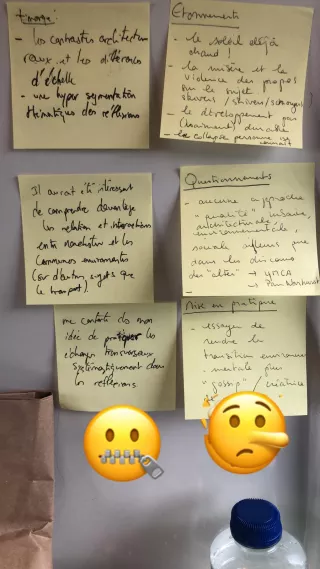 - les contrastes architectu
raux et les différences
d'échelle
- une hyper segmentation
thématiques des réflexions
Étonnements
- le soleil déjà
chaud !
- la misère et la
violence des propos
sur le sujet
- le développement pas
(vraiment) durable
- le collapse personne
Il aurait été intéressant
de comprendre davantage
les relations et interactions
entre
et les
communes environnantes
(sur d'autres sujets que
le transport)
Questionnements
- aucune approche
"qualité" urbaine,
architecturale,
environnementale,
sociale
que
dans les discours
des "
me conforte ds mon
idée de pratiquer les
échanges transversaux
systématiquement dans
les réflexions
Mise en pratique
- essayer de
rendre la
transition environne
mentale plus
"gossip" / créatrice